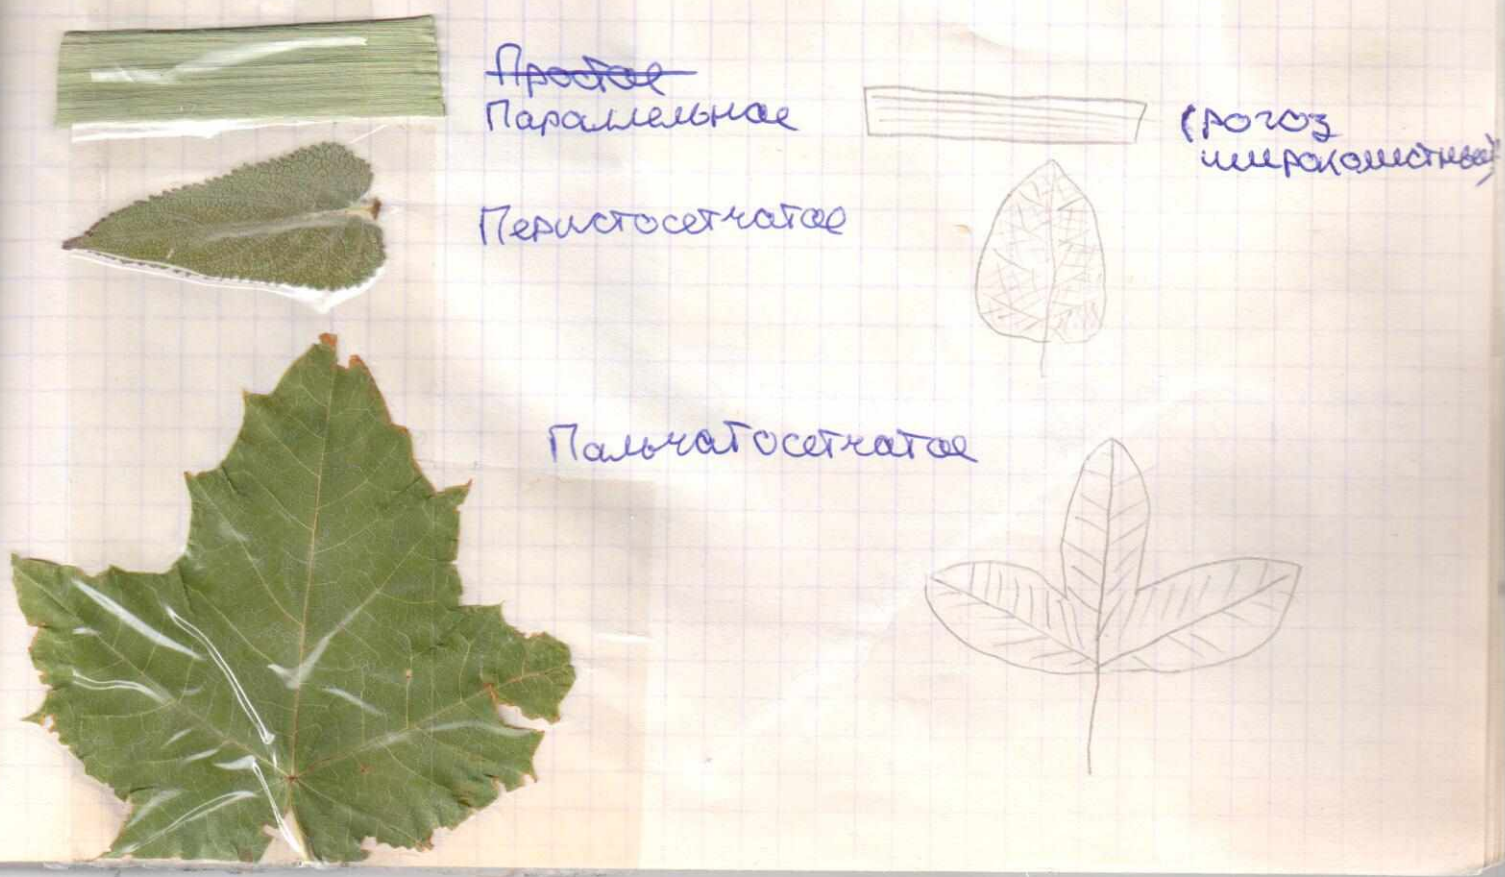 Простое
Параллельное
(рогоз
широколистный)
Перистосетчатое
Пальчатосетчатое